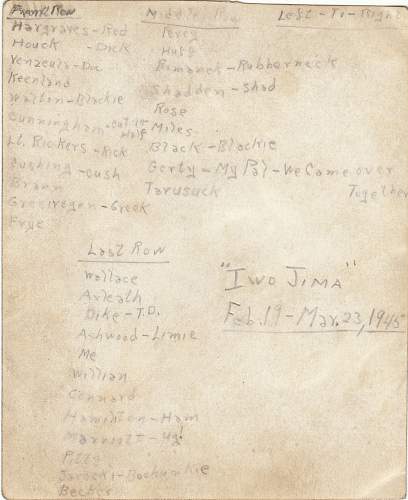 Front Row
Hargraves-Red
Houck -Dick
Venzeula-Doc
Keenland
Walton-Blackie
Cunningham-cut it Half
Lt. Rickers-Rick
Cushing-Cush
Braun
-Greek
Frye
Middle Row
Percy
Huff
Romanek-Rubberneck
Shadden-Shad
Rose
Miles
Black-Blackie
Gerty-My Pal-We Came over Together
Tarusuck
Left-To-Right
Last Row
Wallace
Dike-T.D.
Ashwood-Limie
Me
Willian
Gennard
Hamilton-Ham
Marriott-
Pitts
Becker
"IWO JIMA"
Feb.19-Mar.23,1945